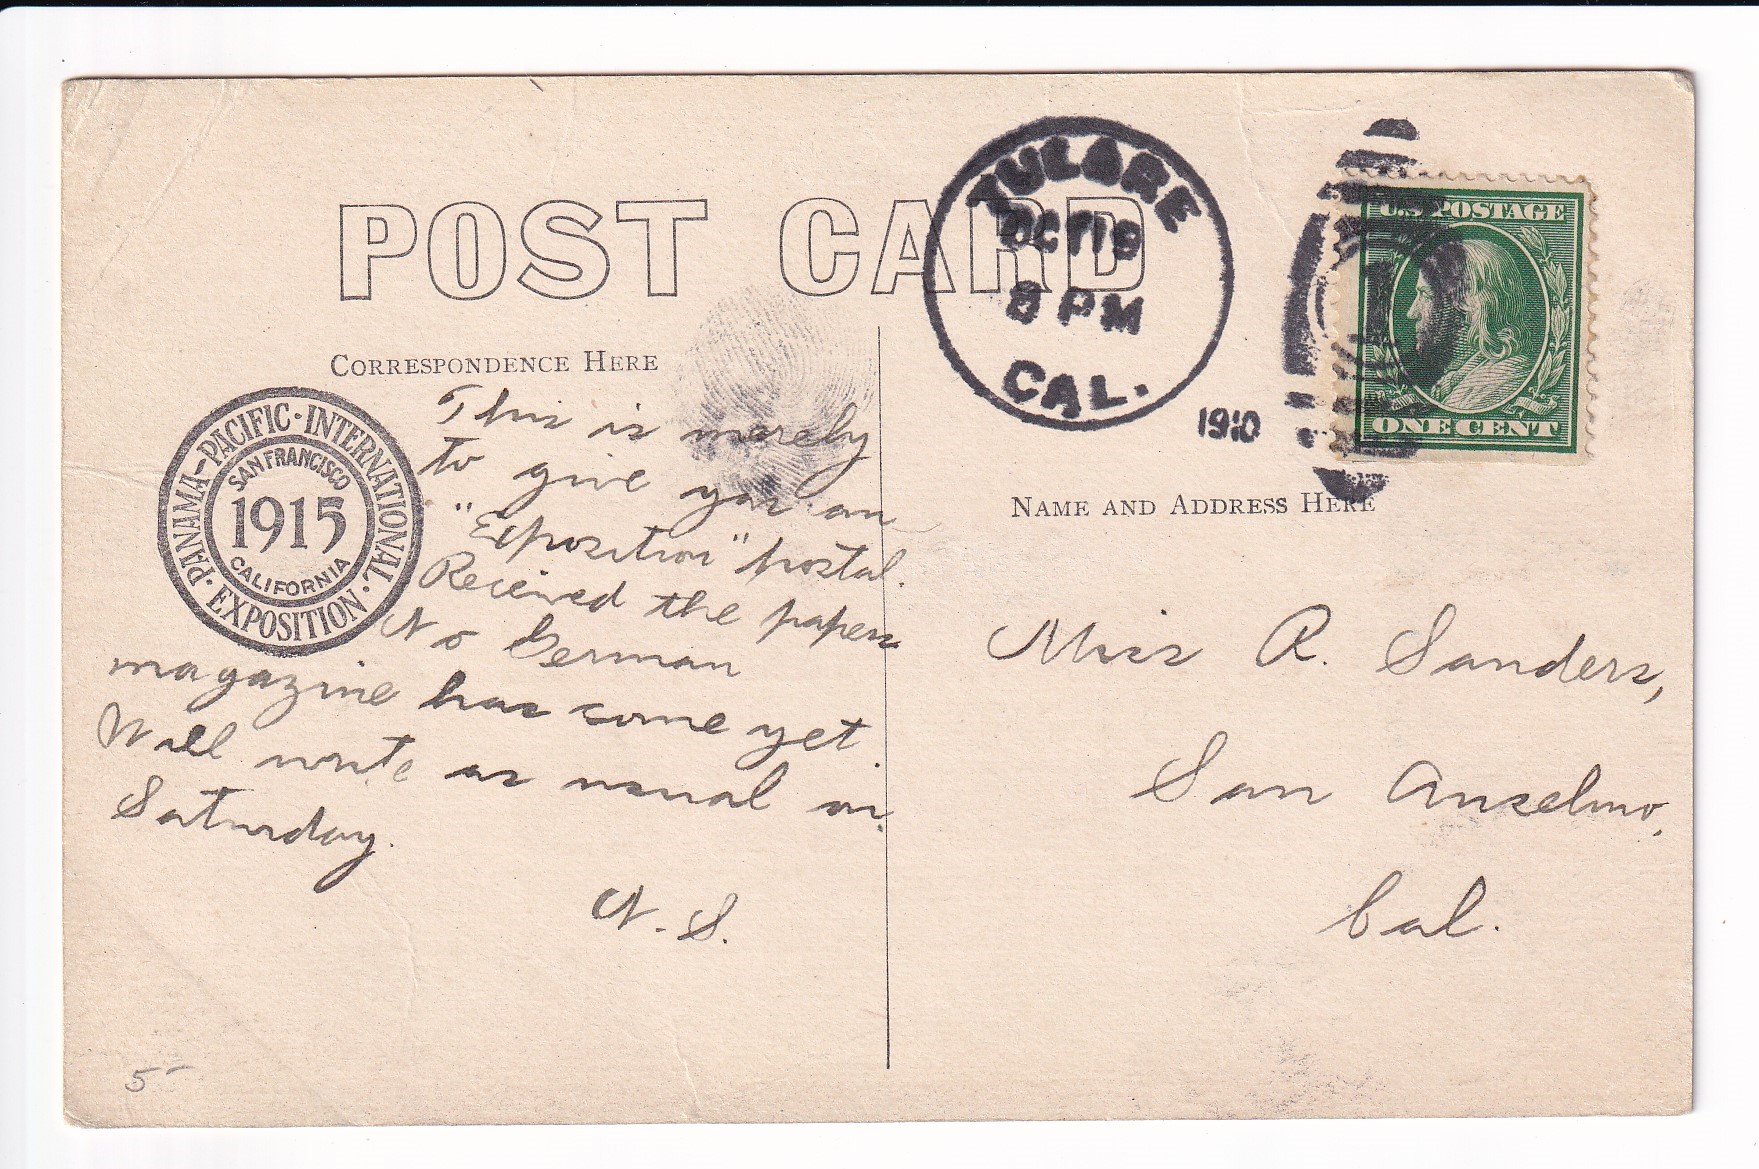 POST CARD
TULARE
OCT 19
8 PM
CAL.
1910
U.S. POSTAGE
ONE CENT
CORRESPONDENCE HERE
NAME AND ADDRESS HERE
PANAMA-PACIFIC-INTERNATIONAL
EXPOSITION
SAN FRANCISCO
1915
CALIFORNIA
This is merely
to give you an
"Exposition" postal.
Received the papers
No German
magazine has come yet.
Will write as usual on
Saturday.
N. S.
Miss R. Sanders,
San Anselmo,
Cal.
5-